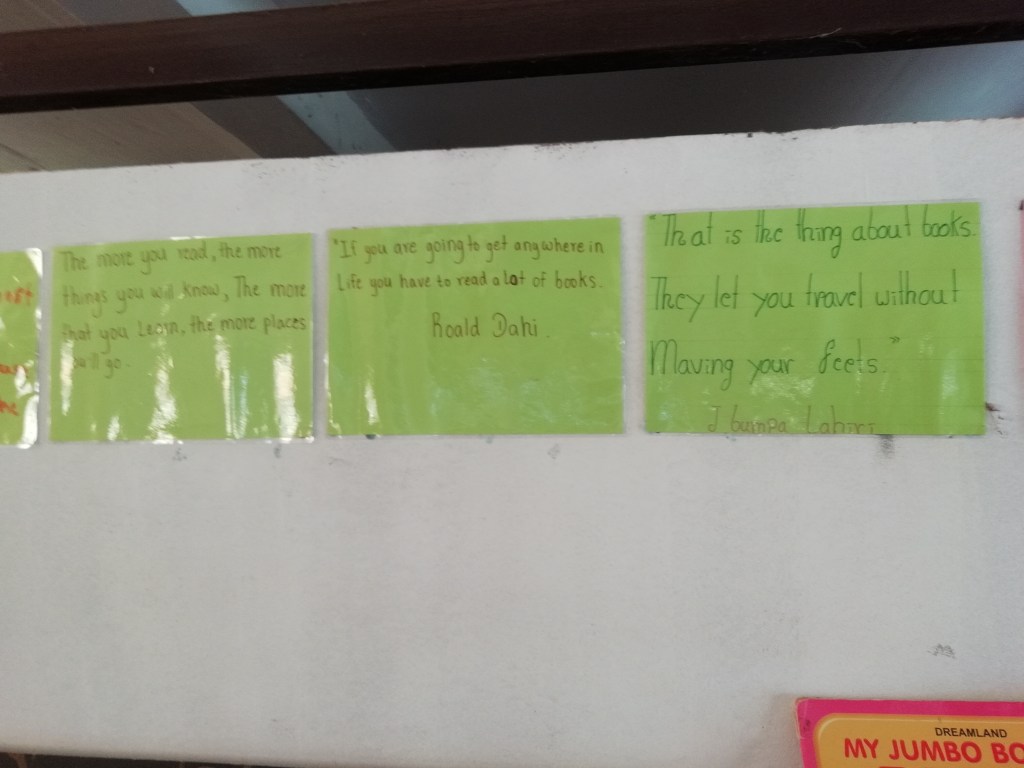 The more you read, the more
things you will know, The more
that you Learn, the more places
you'll go.
"If you are going to get angwhere in
Life you have to read a lot of books.
Roald Dahi.
"That is the thing about books.
They let you travel without
Maving your feets."
Jbumpa Lahiri
DREAMLAND
MY JUMBO BO